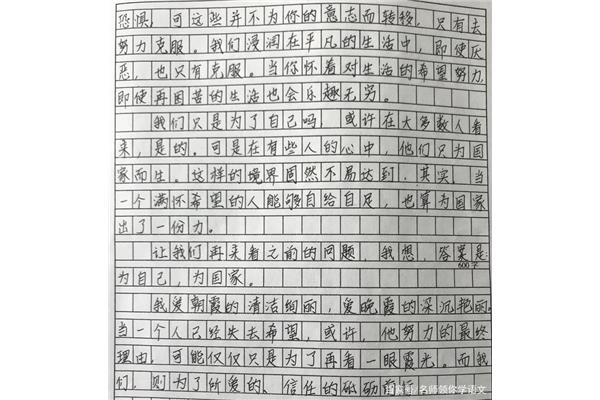 恐惧,可这些并不为你的意志而转移,只有去
努力克服。我们浸润在平凡的生活中,即使厌
恶,也只有克服。当你怀着对生活的希望努力,
即使再困苦的生活也会乐趣无穷。
我们只是为了自己吗,或许在大多数人看
来,是的。可是在有些人的心中,他们只为国
家而生。这样的境界固然不易达到,其实,当
一个满怀希望的人能够自给自足,也算为国家
出了一份力。
让我们再来看之前的问题,我想,答案是
600字
为自己,为国家。
我爱朝霞的清洁绚丽,爱晚霞的深沉艳丽。
当一个人已经失去希望,或许,他努力的最终
理由,可能仅仅只是为了再看一眼霞光。而我
们,则为了所爱的、信任的砥砺前行
名师领你学语文